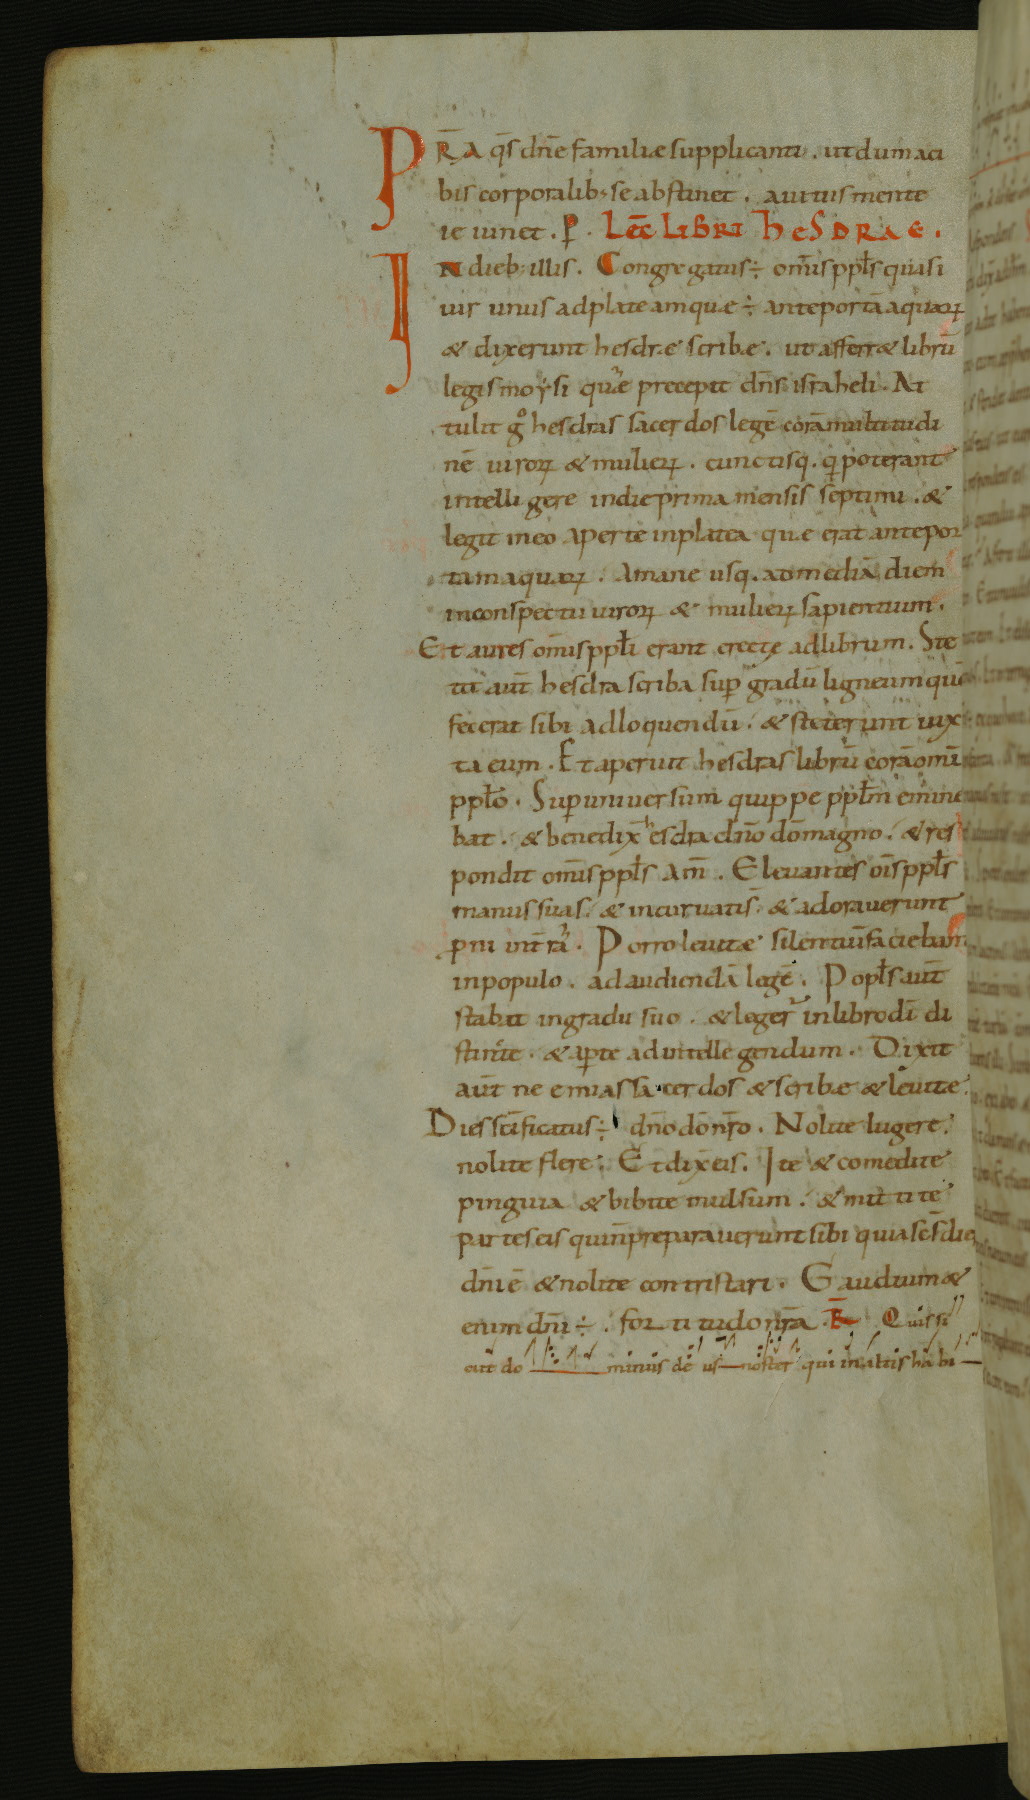 PR̄A q̄s dn̄e familiæ supplicanti. ut dum a ci
bis corporalib; se abstinet. a uitiis mente
ieiunet. P̱. LEC̄ LIBRI HESDRAE.
IN dieb; illis. Congregatus ÷ om̄is ppl̄s quasi
uir unus ad plateam quæ ÷ ante portā aquarꝝ
& dixerunt hesdræ scribæ. ut afferr& librū
legis moysi quē precepit dn̄s israheli. At
tulit gͦ hesdras sacerdos legē corā multitudi
nē uirorꝝ & mulierꝝ. cunctisq. qͥ poterant
intelligere in die prima mensis septimi. &
legit in eo aperte in platea quæ erat ante por
tam aquarꝝ. A mane usq. ad mediā diem
in conspectu uirorꝝ & mulierꝝ sapientium.
Et aures om̄is ppl̄i erant erectę ad librum. Ste
tit aut̄ hesdra scriba sup̱ gradū ligneum quē
fecerat sibi ad loquendū. & steterunt iux
ta eum. Et aperuit hesdras librū corā omī
ppl̄o. Sup̱ uniuersum quippe ppl̄m emine
bat. & benedix̄ hesdra dn̄o dō magno. & res
pondit om̄is ppl̄s am̄. Eleuantes ōis ppl̄s
manus suas. & incuruatis̄. & adorauerunt
pni int̄rā. Porro leuitæ silentiū faciebant
in populo. ad audiendā legē. Popl̄s aut̄
stabat in gradu suo. & leger̄ in libro dī di
stincte. & ap̱te ad intellegendum. Dixit
aut̄ neemias sacerdos & scribæ & leuitæ.
Dies sc̄ificatus ÷ dn̄o dō nr̄o. Nolite lugere.
nolite flere. Et dix̄ eis. Ite & comedite
pinguia & bibite mulsum. & mittite
partes eis qui n̄ preparauerunt sibi quia sc̄s dies
dn̄i ē & nolite contristari. Gaudium &
enim dn̄i ÷. fortitudo nr̄a. R̄ Quis si
cut do minus de us noster qui in altis ha bi